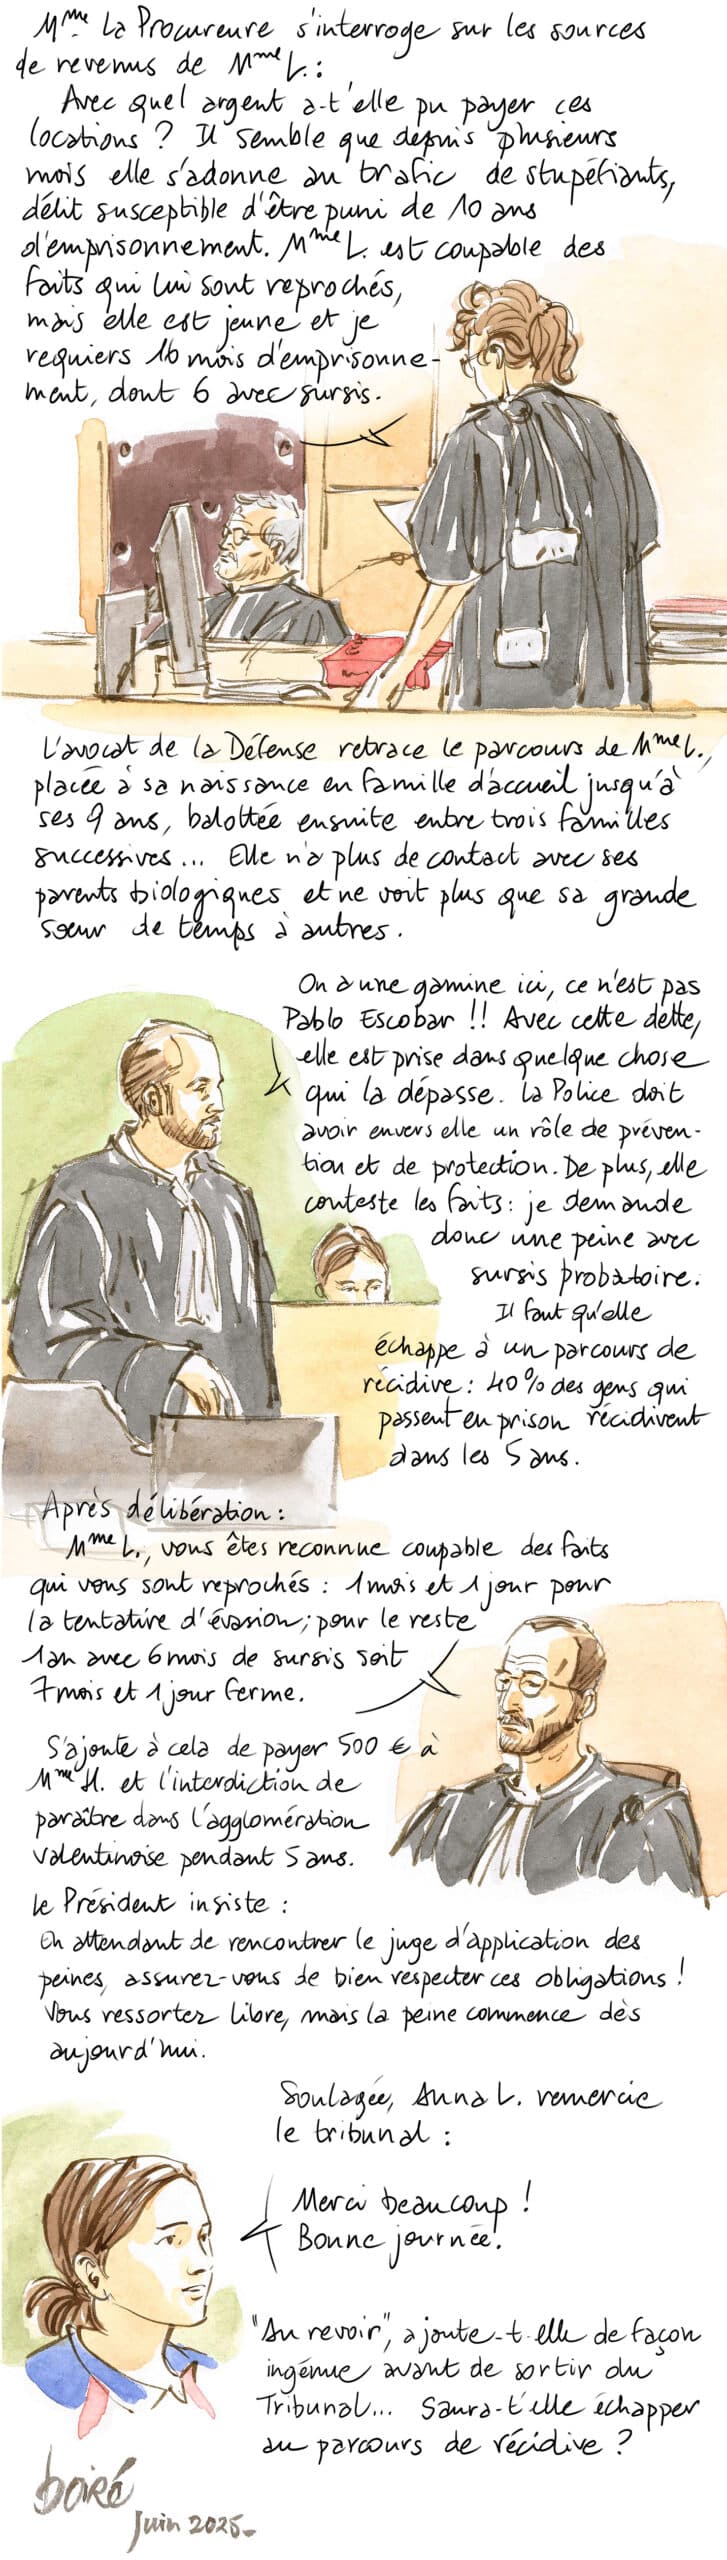 Mme La Procureure s'interroge sur les sources
de revenus de Mme L. :
Avec quel argent a-t'elle pu payer ces
locations ? Il semble que depuis plusieurs
mois elle s'adonne au trafic de stupéfiants,
délit susceptible d'être puni de 10 ans
d'emprisonnement. Mme L. est coupable des
faits qui lui sont reprochés,
mais elle est jeune et je
requiers 16 mois d'emprisonne-
ment, dont 6 avec sursis.
L'avocat de la Défense retrace le parcours de Mme L.,
placée à sa naissance en famille d'accueil jusqu'à
ses 9 ans, balottée ensuite entre trois familles
successives... Elle n'a plus de contact avec ses
parents biologiques et ne voit plus que sa grande
sœur de temps à autres.
On a une gamine ici, ce n'est pas
Pablo Escobar !! Avec cette dette,
elle est prise dans quelque chose
qui la dépasse. La Police doit
avoir envers elle un rôle de préven-
tion et de protection. De plus, elle
conteste les faits : je demande
donc une peine avec
sursis probatoire.
Il faut qu'elle
échappe à un parcours de
récidive : 40% des gens qui
passent en prison récidivent
dans les 5 ans.
Après délibération :
Mme L., vous êtes reconnue coupable des faits
qui vous sont reprochés : 1 mois et 1 jour pour
la tentative d'évasion ; pour le reste
1 an avec 6 mois de sursis soit
7 mois et 1 jour ferme.
S'ajoute à cela de payer 500 € à
Mme H. et l'interdiction de
paraître dans l'agglomération
valentinoise pendant 5 ans.
Le Président insiste :
En attendant de rencontrer le juge d'application des
peines, assurez-vous de bien respecter ces obligations !
Vous ressortez libre, mais la peine commence dès
aujourd'hui.
Soulagée, Anna L. remercie
le tribunal :
Merci beaucoup !
Bonne journée.
"Au revoir", ajoute-t-elle de façon
ingénue avant de sortir du
Tribunal... Saura-t'elle échapper
au parcours de récidive ?
boiré
Juin 2025-